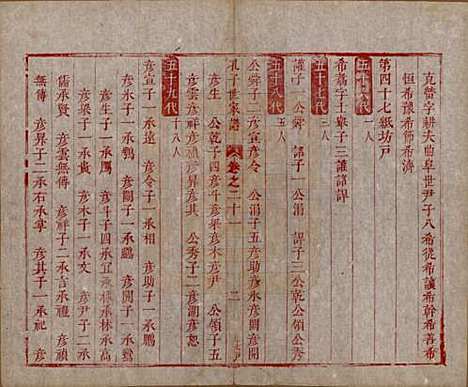 克營字耕夫曲阜世尹子八希從希議希幹希善希
恒希豫希節希濟
第四十七紙坊戶
五十六代
一人
希嘉字士舉子三誰諾諱
五十七代
三人
誰子一公舜 諾子一公涓 諱子三公乾公領公秀
五十八代
五人
公舜子二彥宣彥令 公涓子五彥助彥永彥關彥開
孔子世家譜 卷之二十一 二
彥生 公乾子四彥斗彥梁彥木彥尹 公領子五
彥雲彥昇彥其 公秀子二彥湖彥恕
五十九代
十八人
彥宣子一承遠 彥令子一承相 彥助子一承鵬
彥永子一承鶚 彥關子一承鸝 彥開子一承鸞
彥生子一承鷹 彥斗子四承宜承標承
彥梁子一承貴 彥木子一承文 彥尹子二承
儒承賢 彥雲無傳 彥子一承禮 彥禎
無傳 彥昇子一承石 彥其子一承祀 彥